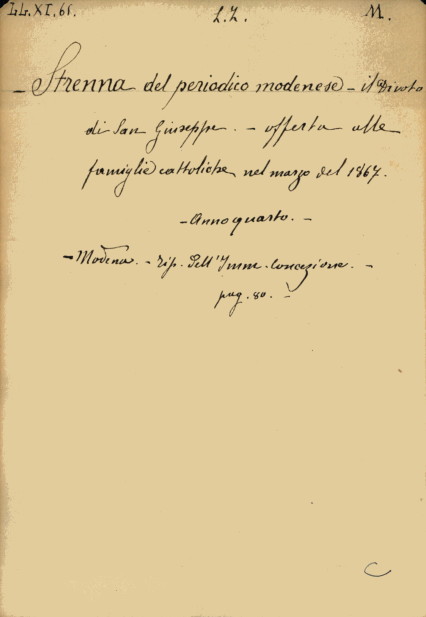 LL.XI.61. L.L. M.
- Strenna del periodico modenese - il Divoto
di San Giuseppe. - offerta alle
famiglie cattoliche nel marzo del 1867.
- Anno quarto. -
- Modena. - Tip. Dell'Imm. Concezione. -
pag. 80. -
C